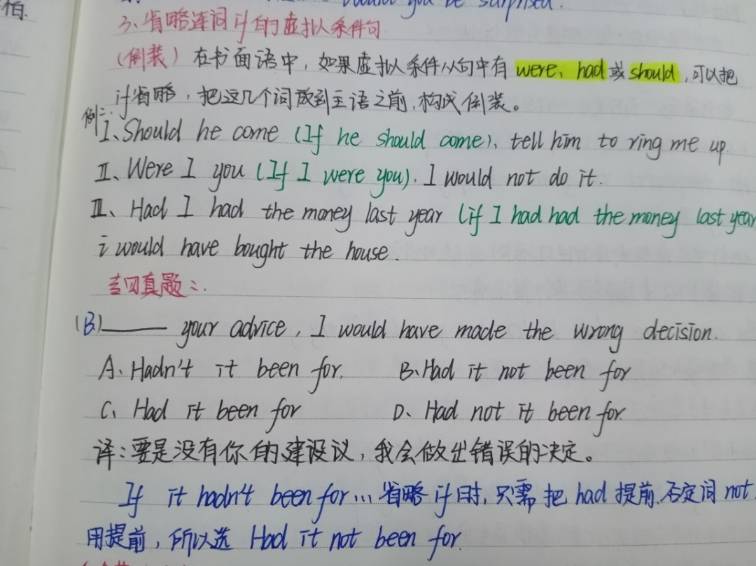 怕.
would you be surprised.
3、省略连词if的虚拟条件句
(倒装) 在书面语中,如果虚拟条件从句中有 were、had或should,可以把
if省略,把这几个词放到主语之前,构成倒装。
例:
I、Should he come (If he should come), tell him to ring me up
II、Were I you (If I were you), I would not do it.
III、Had I had the money last year (if I had had the money last year
i would have bought the house.
真题:
(B) ____ your advice, I would have made the wrong decision.
A、Hadn't it been for. B、Had it not been for
C、Had it been for D、Had not it been for
译:要是没有你的建设议,我会做出错误的决定。
If it hadn't been for... 省略if时,只需把had提前,否定词not
用提前,所以选 Had it not been for.